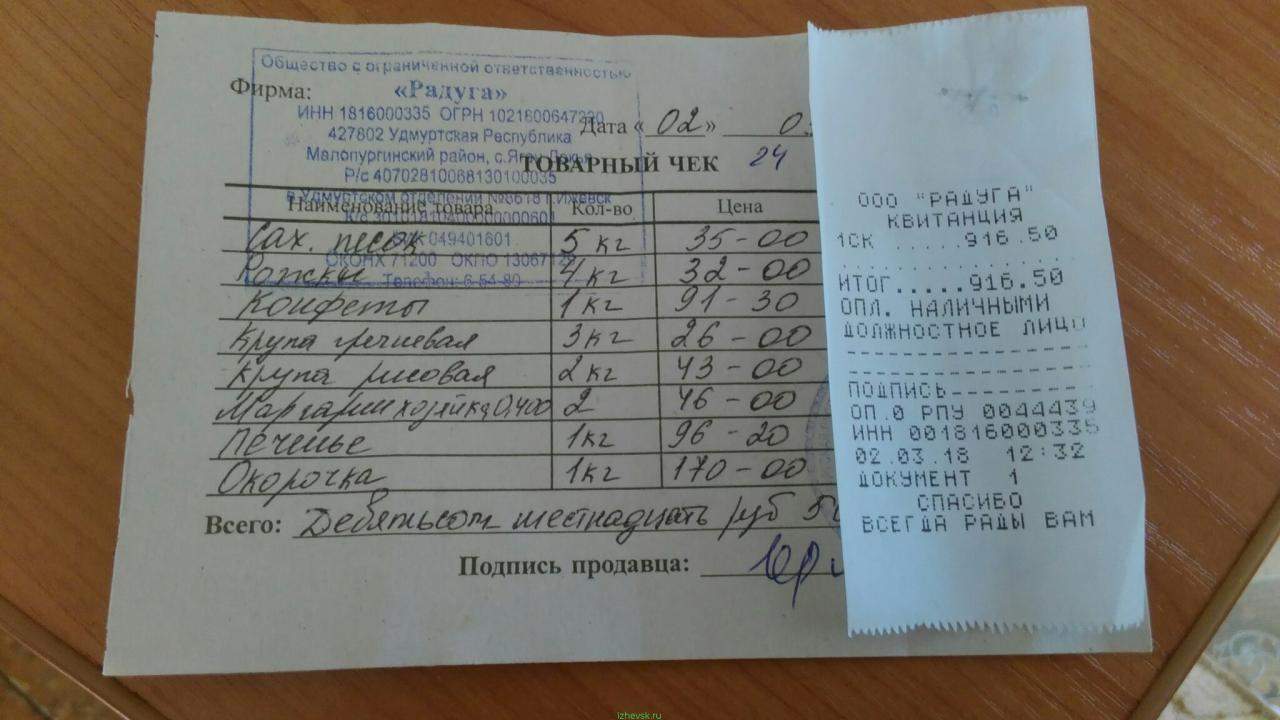 Общество с ограниченной ответственностью
Фирма: «Радуга»
ИНН 1816000335 ОГРН 1021800647220
427802 Удмуртская Республика
Дата « 02 » 0
Малопургинский район, с.Яган-Докья
ТОВАРНЫЙ ЧЕК 24
Р/с 40702810068130100035
в Удмуртском отделении №8618 г.Ижевск
Наименование товара Кол-во Цена
049401601
Сах. песок 5 кг 35-00
ОКОНХ 71200 ОКПО 13067
Рожки 4 кг 32-00
Телефон: 6-54-80
Конфеты 1 кг 91-30
Крупа гречневая 3 кг 26-00
Крупа рисовая 2 кг 43-00
Маргарин хозяйка 0,400 2 46-00
Печенье 1 кг 96-20
Окорочка 1 кг 170-00
Всего: Девятьсот шестнадцать руб 50
Подпись продавца:
ООО "РАДУГА"
КВИТАНЦИЯ
1СК .....916.50
ИТОГ.....916.50
ОПЛ. НАЛИЧНЫМИ
ДОЛЖНОСТНОЕ ЛИЦО
ПОДПИСЬ
ОП.0 РПУ 0044439
ИНН 001816000335
02.03.18 12:32
ДОКУМЕНТ 1
СПАСИБО
ВСЕГДА РАДЫ ВАМ
izhevsk.ru